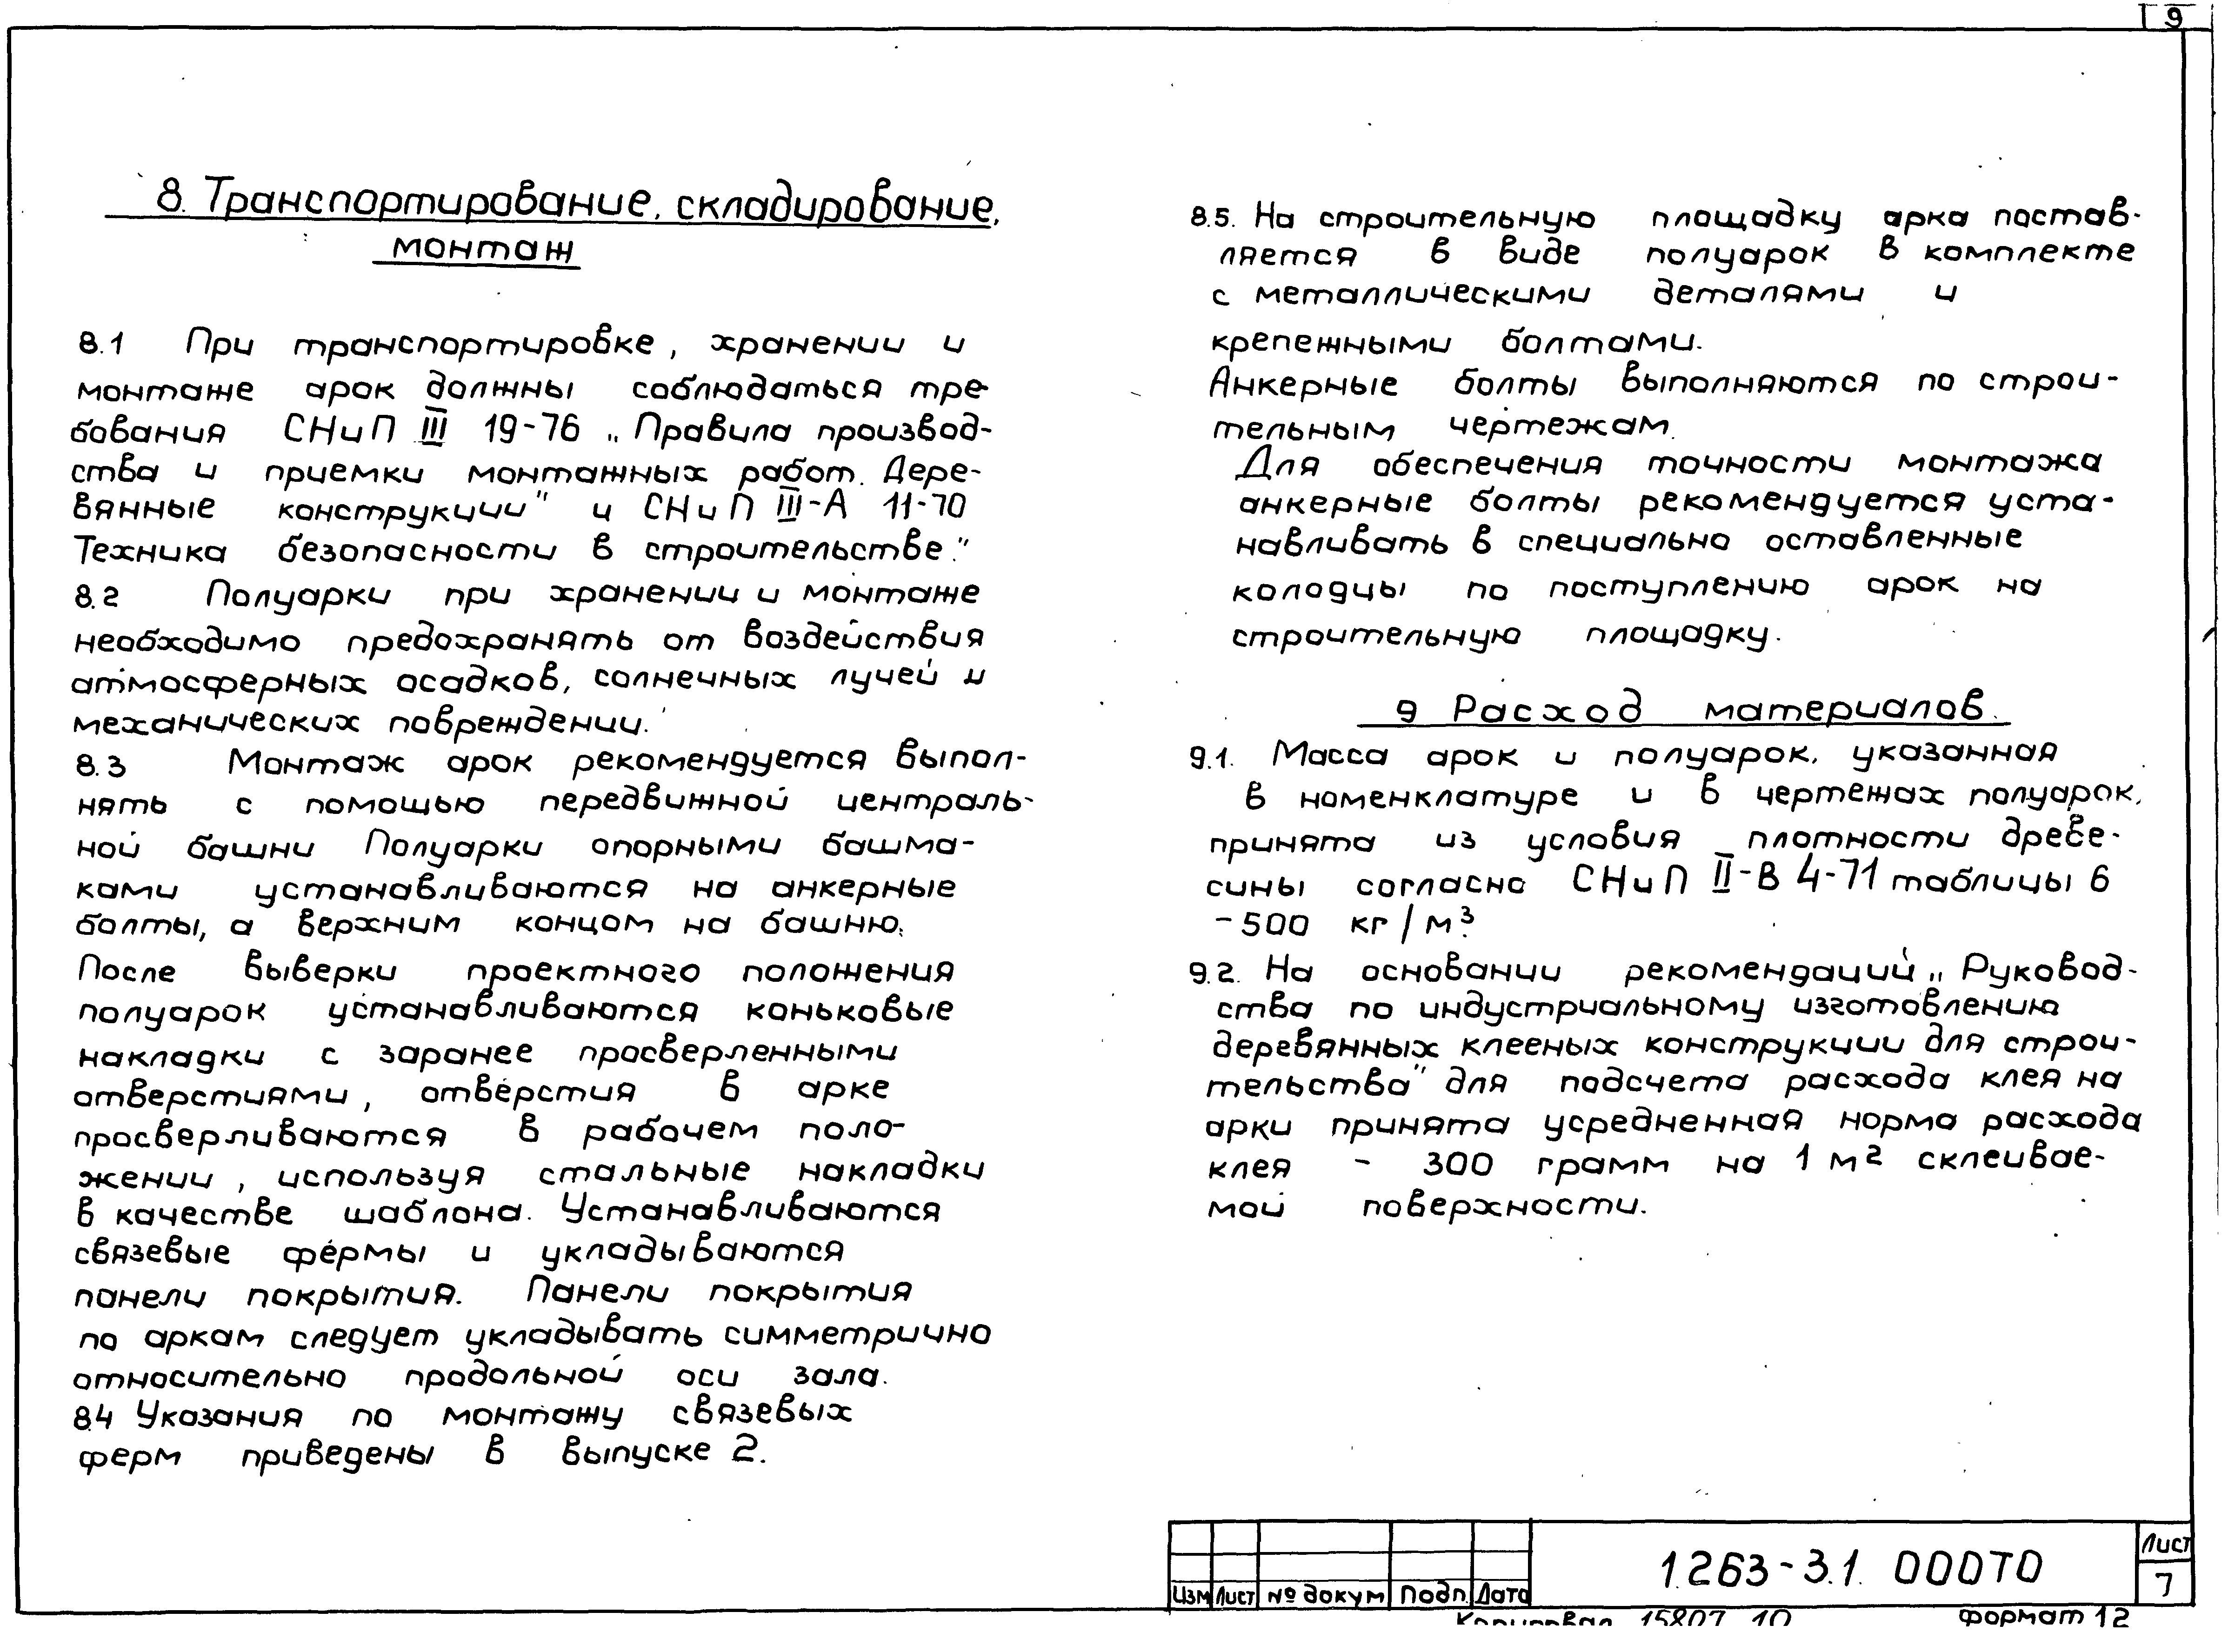 9
8. Транспортирование, складирование,
монтаж
8.1 При транспортировке, хранении и
монтаже арок должны соблюдаться тре-
бования СНиП III 19-76 „Правила производ-
ства и приемки монтажных работ. Дере-
вянные конструкции" и СНиП III-А 11-70
Техника безопасности в строительстве."
8.2 Полуарки при хранении и монтаже
необходимо предохранять от воздействия
атмосферных осадков, солнечных лучей и
механических повреждении.
8.3 Монтаж арок рекомендуется выпол-
нять с помощью передвижной централь-
ной башни Полуарки опорными башма-
ками устанавливаются на анкерные
болты, а верхним концом на башню.
После выверки проектного положения
полуарок устанавливаются коньковые
накладки с заранее просверленными
отверстиями, отверстия в арке
просверливаются в рабочем поло-
жении, используя стальные накладки
в качестве шаблона. Устанавливаются
связевые фермы и укладываются
панели покрытия. Панели покрытия
по аркам следует укладывать симметрично
относительно продольной оси зала.
8.4 Указания по монтажу связевых
ферм приведены в выпуске 2.
8.5. На строительную площадку арка постав-
ляется в виде полуарок в комплекте
с металлическими деталями и
крепежными болтами.
Анкерные болты выполняются по строи-
тельным чертежам.
Для обеспечения точности монтажа
анкерные болты рекомендуется уста-
навливать в специально оставленные
колодцы по поступлению арок на
строительную площадку.
9 Расход материалов.
9.1. Масса арок и полуарок, указанная
в номенклатуре и в чертежах полуарок,
принята из условия плотности древе-
сины согласно СНиП II-В 4-71 таблицы 6
-500 кг/м³.
9.2. На основании рекомендаций „Руковод-
ства по индустриальному изготовлению
деревянных клееных конструкции для строи-
тельства" для подсчета расхода клея на
арки принята усредненная норма расхода
клея - 300 грамм на 1 м2 склеивае-
мой поверхности.
Изм Лист № докум Подп. Дата
1.263-3.1. 000ТО
Лист
7
Копировал 15807 10 формат 12